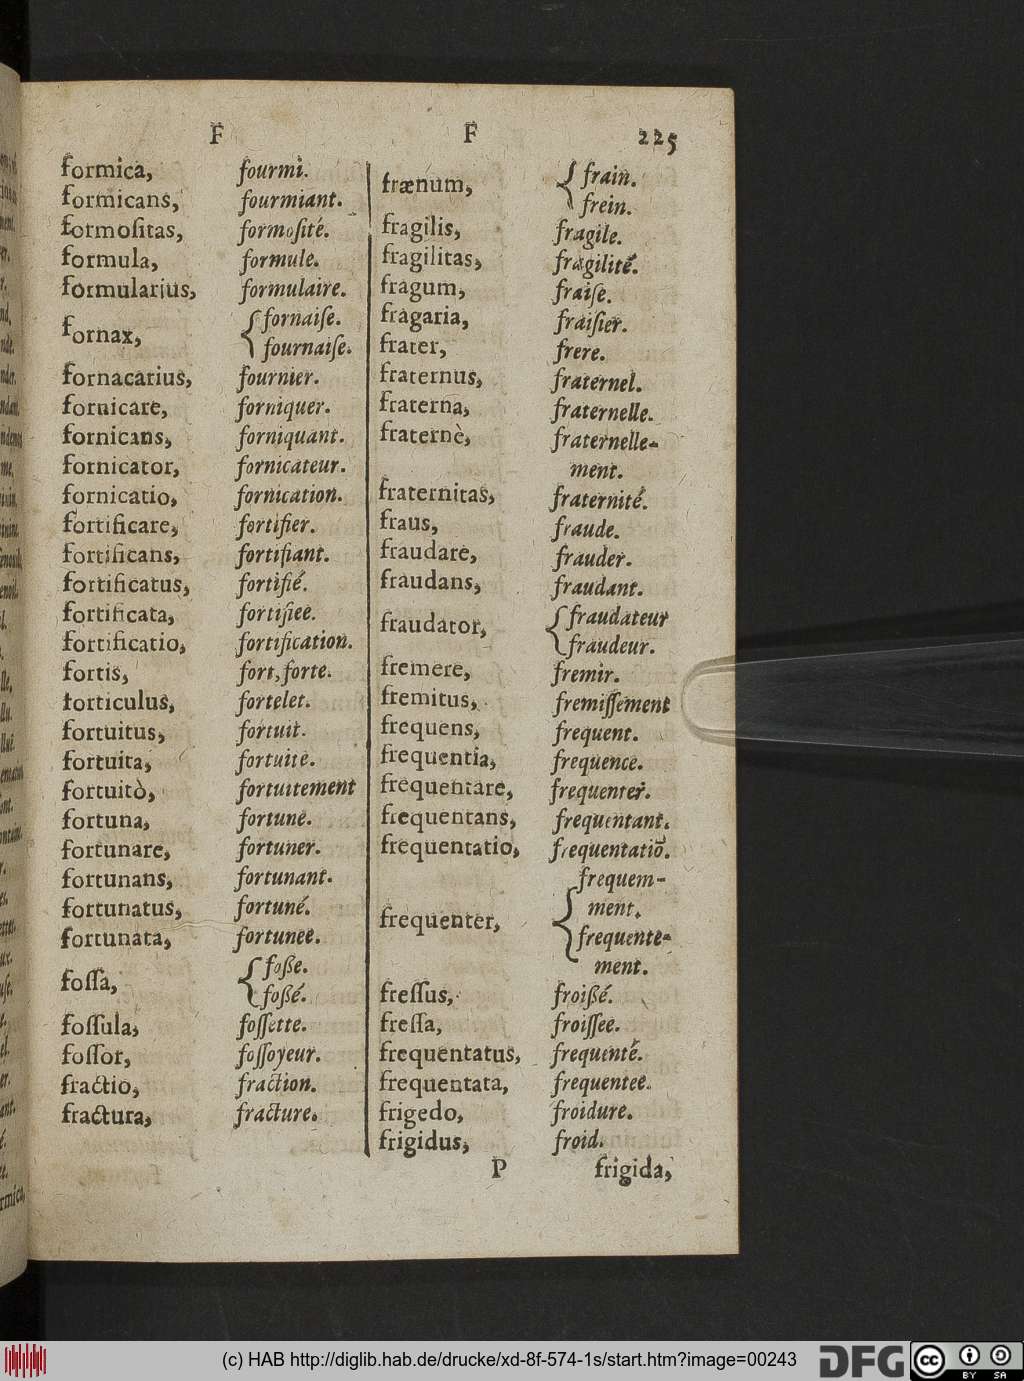 F F 225
formica, fourmi.
formicans, fourmiant.
formoſitas, formoſité.
formula, formule.
formularius, formulaire.
fornax, { fornaiſe.
fournaiſe.
fornacarius, fournier.
fornicare, forniquer.
fornicans, forniquant.
fornicator, fornicateur.
fornicatio, fornication.
fortificare, fortifier.
fortificans, fortifiant.
fortificatus, fortifié.
fortificata, fortifiee.
fortificatio, fortification.
fortis, fort, forte.
forticulus, fortelet.
fortuitus, fortuit.
fortuita, fortuite.
fortuitò, fortuitement
fortuna, fortune.
fortunare, fortuner.
fortunans, fortunant.
fortunatus, fortuné.
fortunata, fortunee.
foſſa, { foße.
foßé.
foſſula, foſſette.
foſſor, foſſoyeur.
fractio, fraction.
fractura, fracture.
frænum, { frain.
frein.
fragilis, fragile.
fragilitas, fragilité.
fragum, fraiſe.
fragaria, fraiſier.
frater, frere.
fraternus, fraternel.
fraterna, fraternelle.
fraternè, fraternelle-
ment.
fraternitas, fraternité.
fraus, fraude.
fraudare, frauder.
fraudans, fraudant.
fraudator, { fraudateur
fraudeur.
fremere, fremir.
fremitus, fremiſſement
frequens, frequent.
frequentia, frequence.
frequentare, frequenter.
frequentans, frequentant.
frequentatio, frequentatiō.
frequenter, { frequem-
ment.
frequente-
ment.
freſſus, froißé.
freſſa, froiſſee.
frequentatus, frequenté.
frequentata, frequentee.
frigedo, froidure.
frigidus, froid.
P frigida,
(c) HAB http://diglib.hab.de/drucke/xd-8f-574-1s/start.htm?image=00243
DFG
cc BY SA